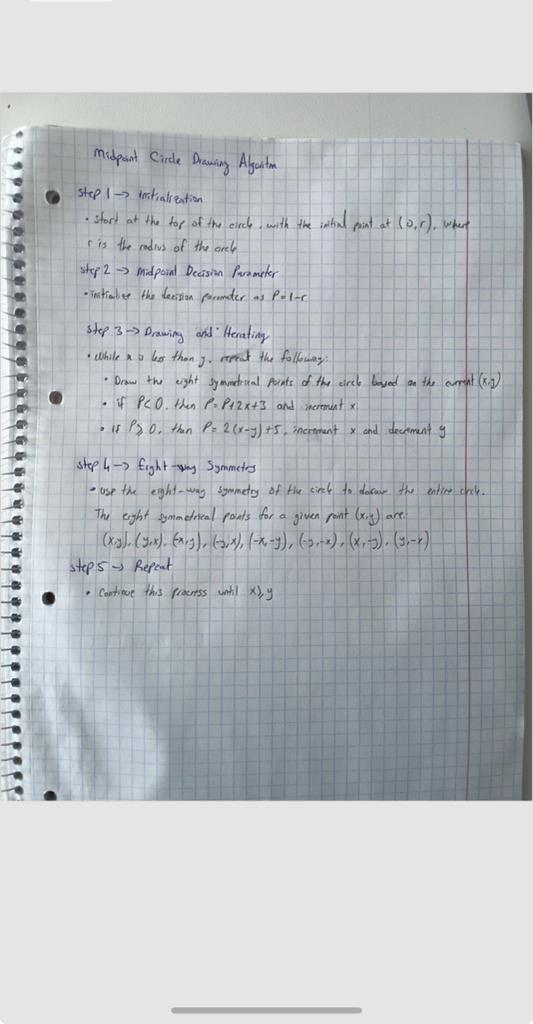 Midpoint Circle Drawing Algoritm
Step 1 → Initialization
• Start at the top of the circle, with the initial point at (0,r), where
r is the radius of the circle
step 2 → Midpoint Decision Parameter
• Initialize the decision parameter as P=1-r
Step 3 → Drawing and Iterating
• While x is less than y, repeat the following:
• Draw the eight symmetrical points of the circle based on the current (x,y)
• if P<0, then P=P+2x+3 and increment x
• if P≥0, then P= 2(x-y)+5, increment x and decrement y
step 4 → Eight-way Symmetry
• use the eight-way symmetry of the circle to draw the entire circle.
The eight symmetrical points for a given point (x,y) are:
(x,y), (y,x), (-x,y), (-y,x), (-x,-y), (-y,-x), (x,-y), (y,-x)
step 5 → Repeat
• Continue this process until x≥y